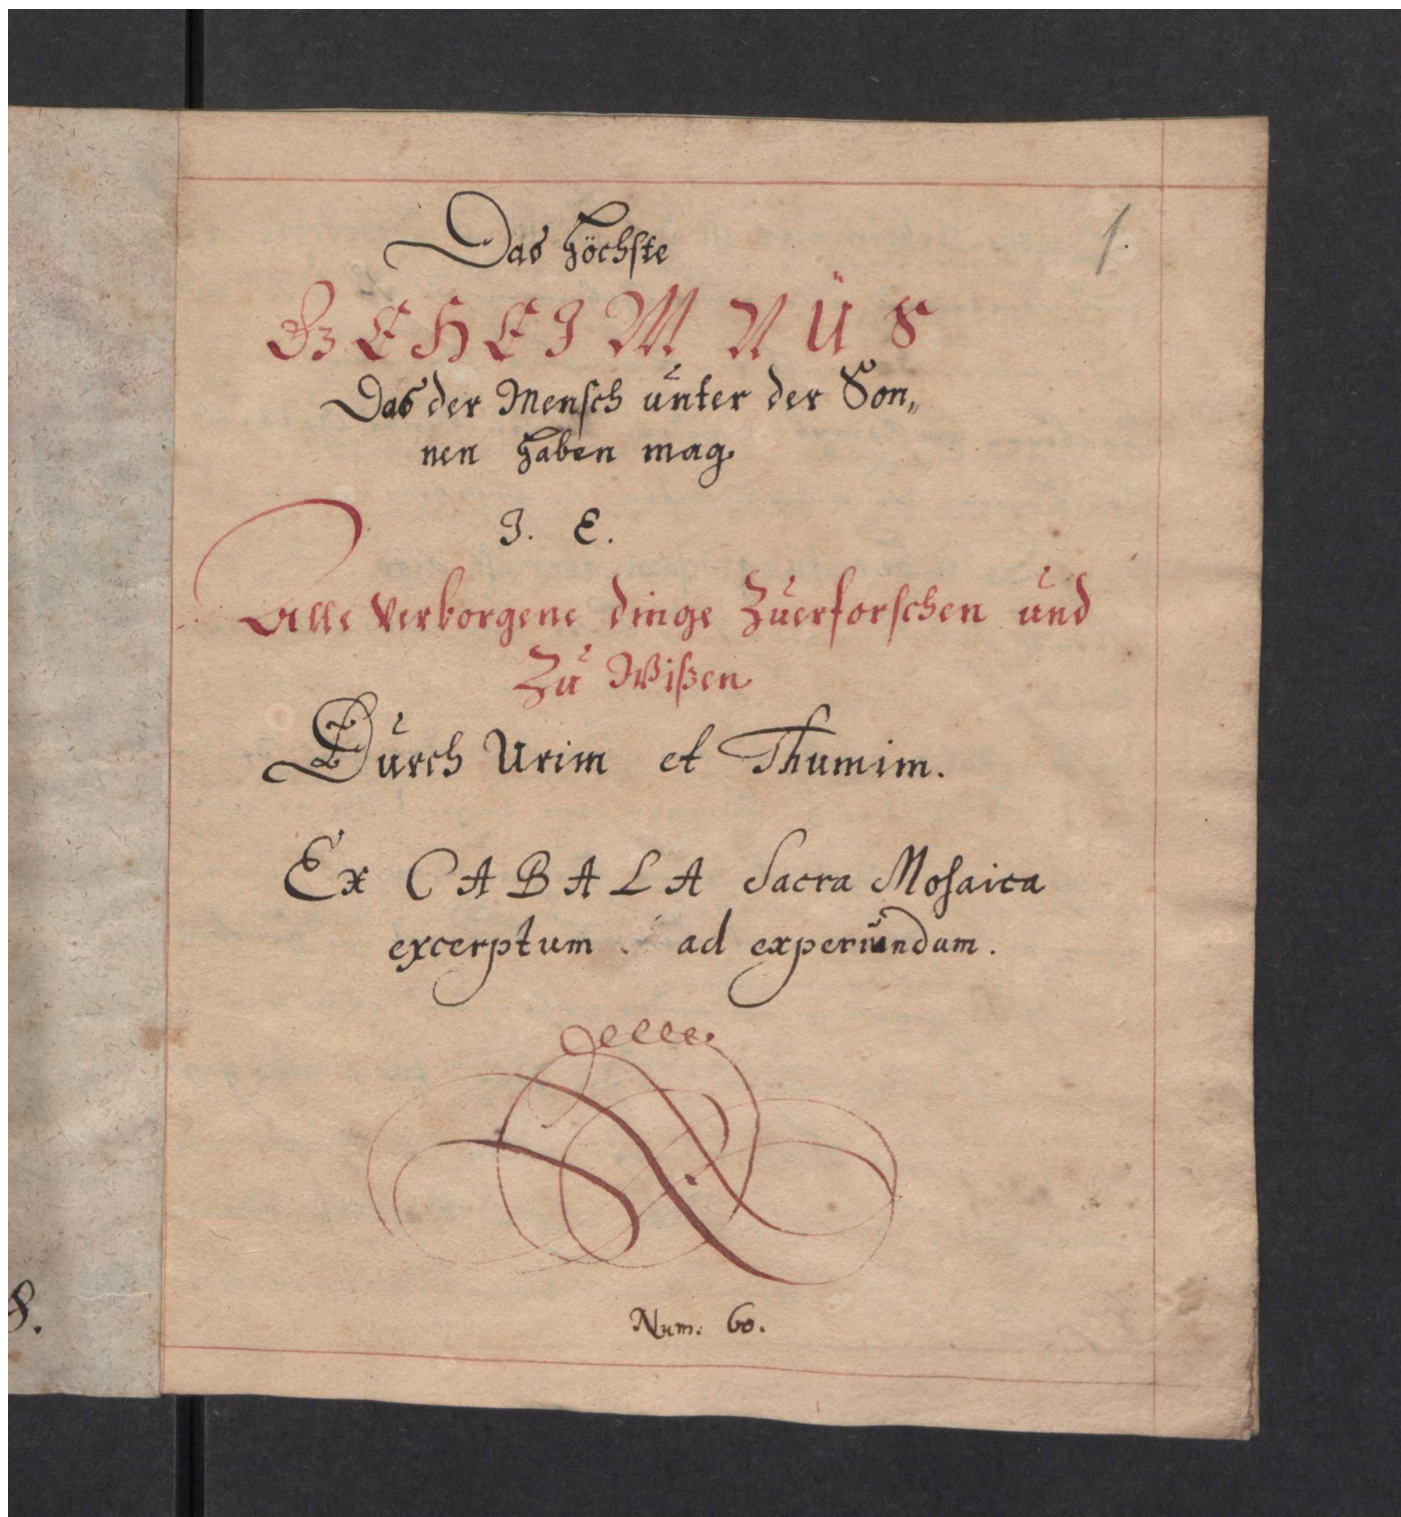 1.
Das höchste
GEHEIMNÜS
Das der Mensch unter der Son„
nen haben mag.
I. E.
Alle Verborgene dinge Zuerforschen und
Zu Wißen
Durch Urim et Thumim.
Ex CABALA Sacra Mosaica
excerptum . ad experiundum.
Num. 60.
8.